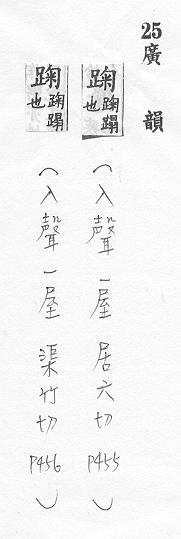 25廣韻
踘 踘蹋也(入聲一屋 居六切 P455)
踘 踘蹋也(入聲一屋 渠竹切 P456)